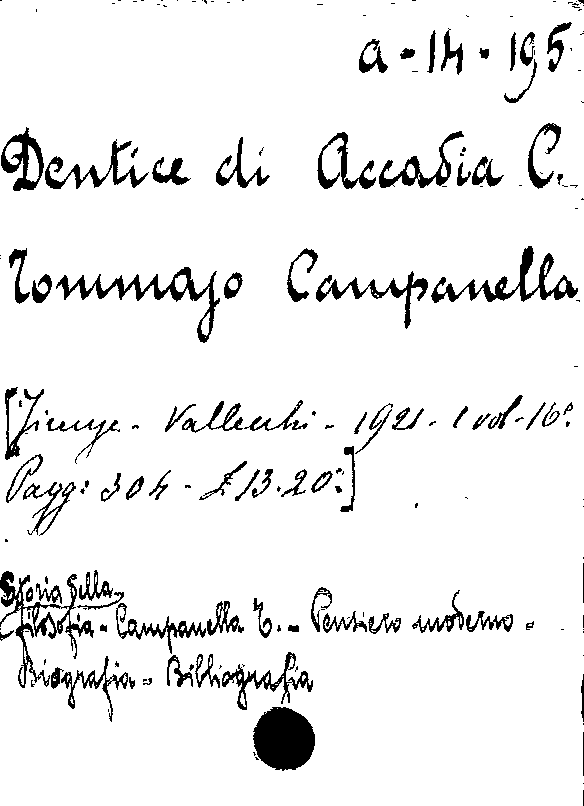 a - 14 - 195
Dentice di Accadia C.
Tommaso Campanella
[Firenze - Vallecchi - 1921 - 1 vol - 16°
Pagg: 304 - £ 13.20:]
Storia della
filosofia - Campanella T. - Pensiero moderno -
Biografia - Bibliografia